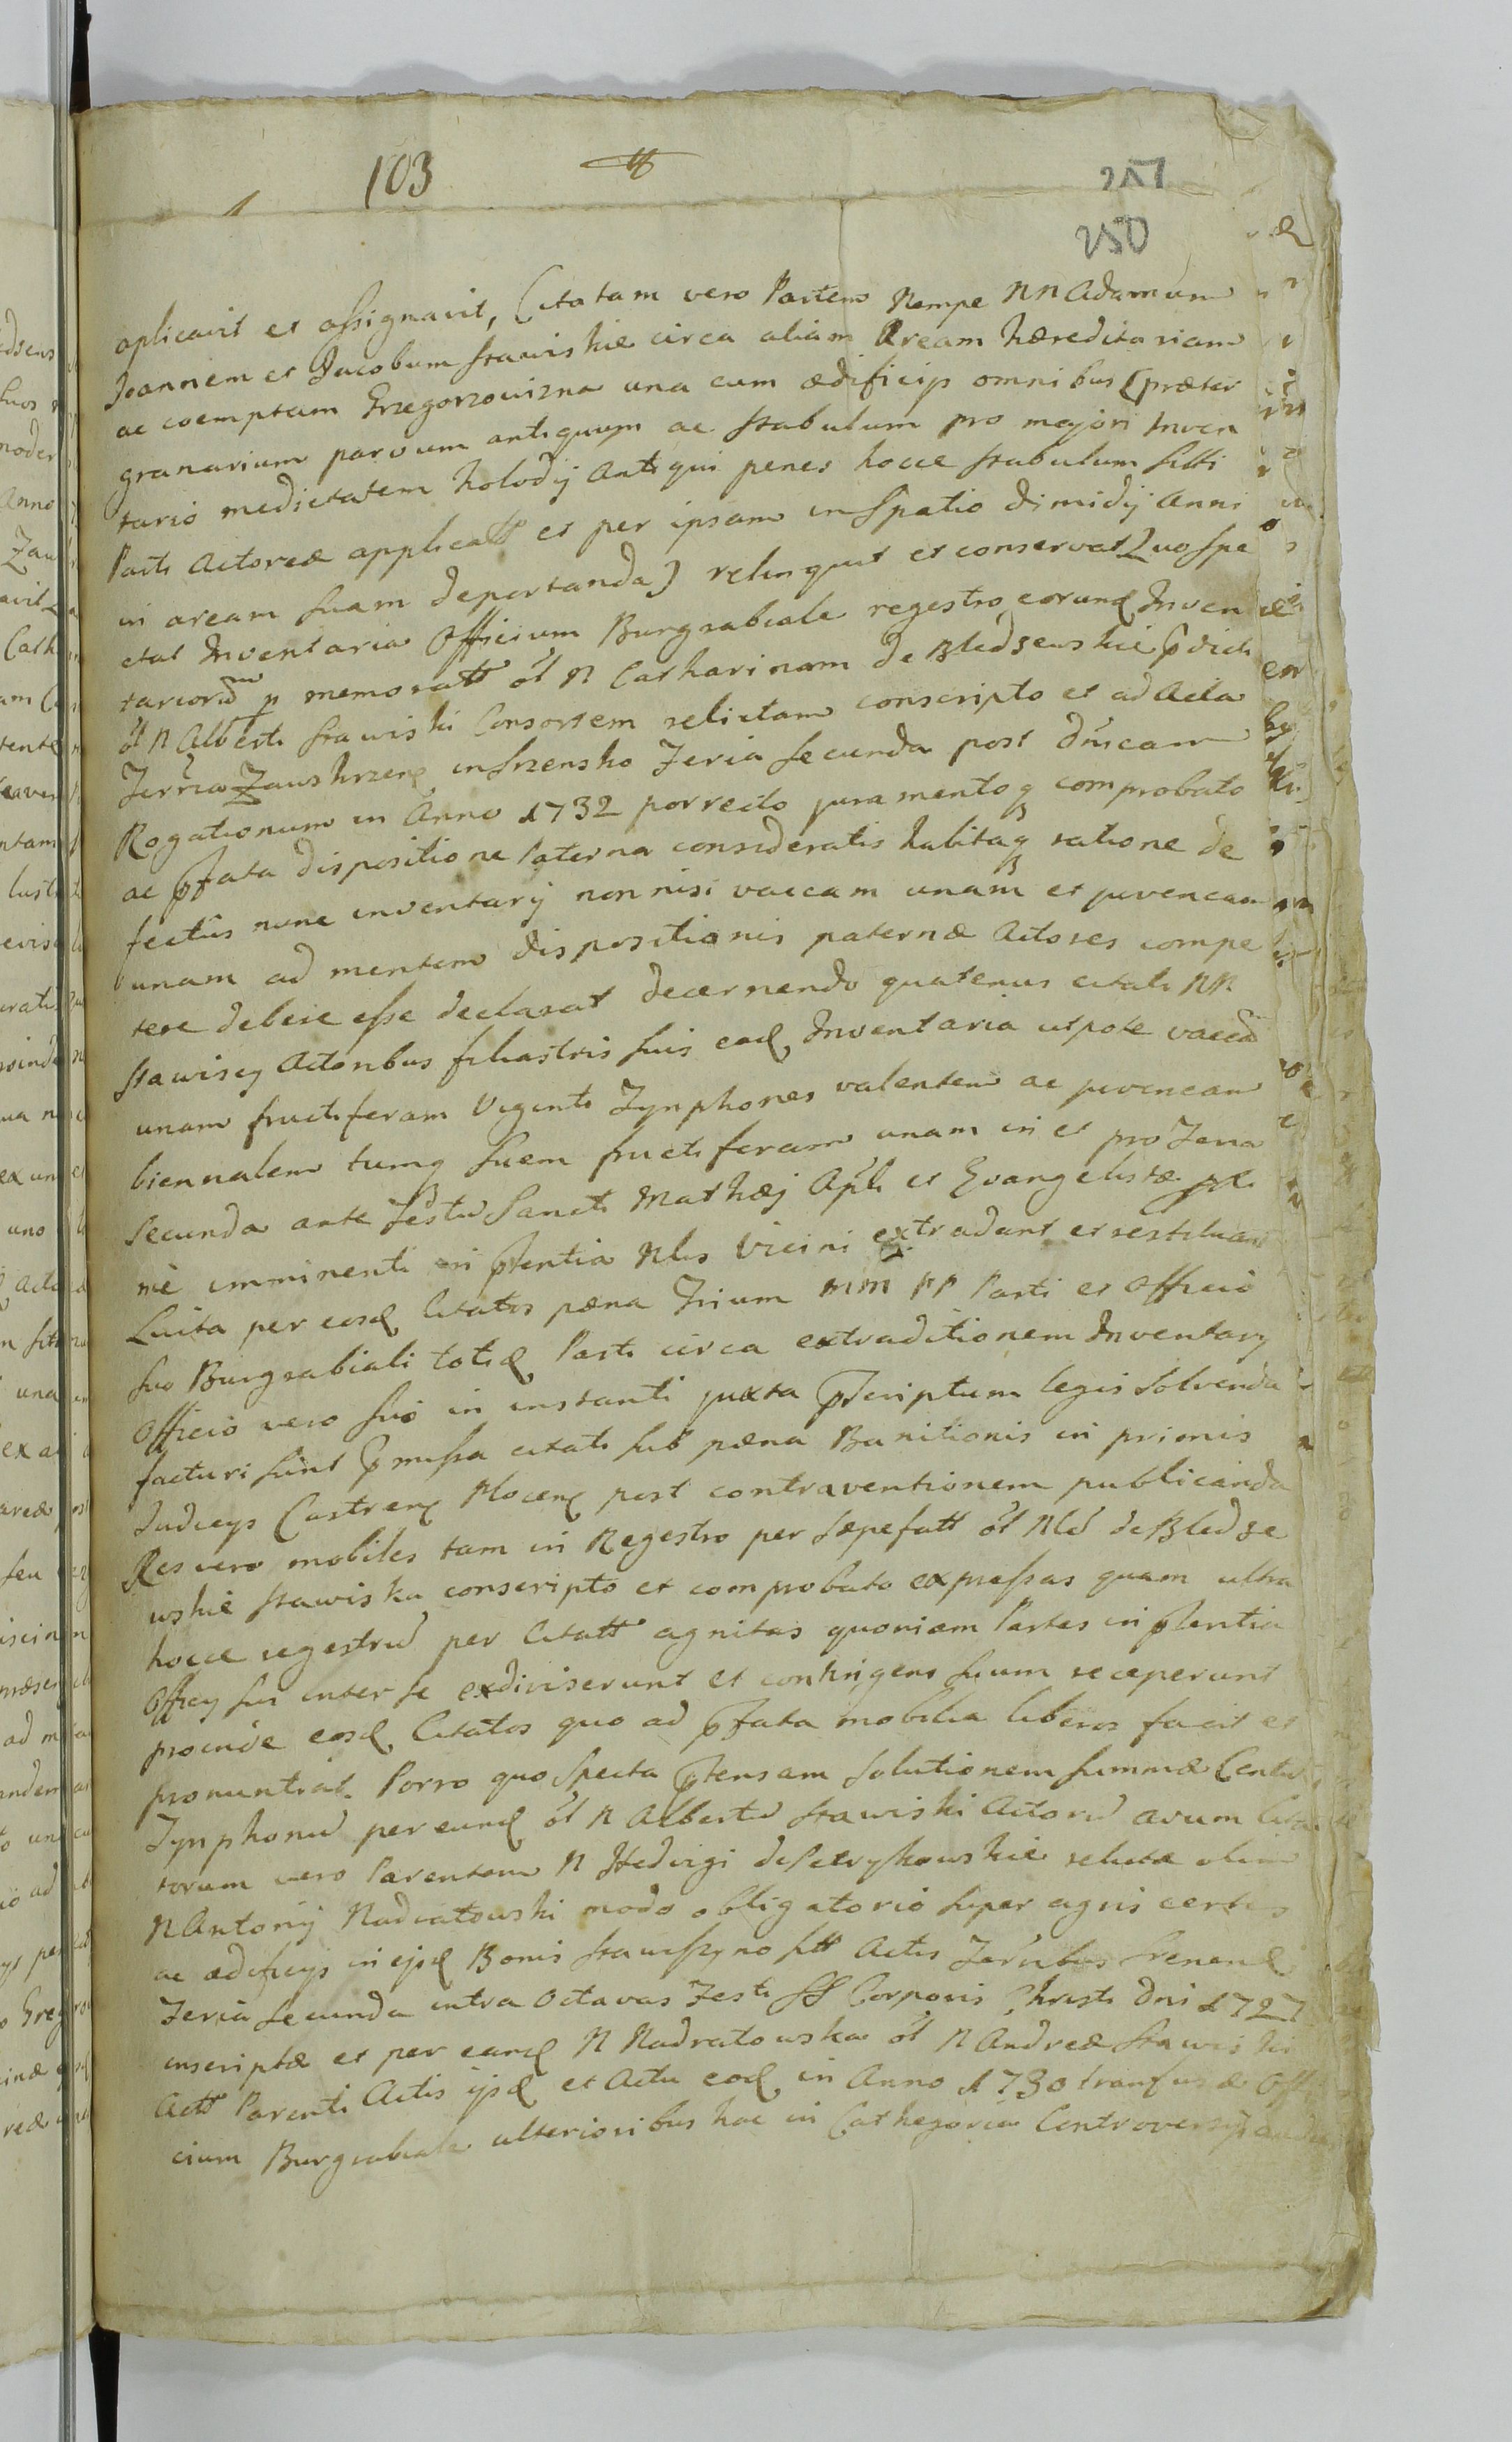 103
257
250
aplicavit et assignavit, Citatam vero Partem Nempe NN Adamum
Joannem et Jacobum Stawiskie circa aliam Aream hæreditariam
ac coemptam Grzegorzowizna una cum ædificijs omnibus (præter
granarium parvum antiquum ac stabulum pro majori Inven
tario medietatem holodij Antiqui penes hocce stabulum siti
Parti Actoreæ applicatt et per ipsam in spatio dimidij Anni
in aream suam deportanda) relinquit et conservat Quo spe
ctat Inventaria Officium Burgrabiale regestro eorund Inven
tariorũ p memoratt ol N Catharinam de Bledzewskie pdicti
ol N Alberti Stawiski Consortem relictam conscripto et ad Acta
Terria Zawskrzen in Srzensko Feria secunda post dnicam
Rogationum in Anno 1732 porrecto juramentoq comprobato
ac pfata dispositione Paterna consideratis habitaq ratione de
fectus nunc inventarij non nisi vaccam unam et juvencam
unam ad mentem dispositionis paternæ Actores compe
tere debere esse declarat decernendo quatenus citati NN
Stawiscy Actoribus filiastris suis ead Inventaria utpote vaccã
unam fructiferam Viginti Tynphones valentem ac juvencam
biennalem tumq suem fructiferam unam in et pro Feria
secunda ante Festũ Sancti Mathæj Apli et Evangelistæ
me imminenti in pntia Nlis Vicini extradant et restituant
Luita per eosd Citatos pæna Trium mm pp Parti et Officio
suo Burgrabiali totid Parti circa extraditionem Inventarij
Officio vero suo in instanti juxta pscriptum legis solvenda
facturi sunt pmissa citati sub pæna Banitionis in primis
Judicijs Castren Plocen post contraventionem publicanda
Res vero mobiles tam in Regestro per sæpefatt ol Nld de Bledze
wskie Stawiska conscripto et comprobato expressas quam ultra
hocce regestrũ per Citatt agnitas quoniam Partes in pntia
Officij sui inter se exdiviserunt et contingens suum receperunt
proinde eosd Citatos quo ad pfata mobilia liberos facit et
pronuntiat. Porro quo specta ptensam solutionem summæ Centũ
Tynphonũ per eund ol N Albertũ Stawiski Actorũ avum Cita
torum vero Parentem N Hedvigi de Petrykowskie relictæ olim
N Antonij Nadratowski modo obligatorio super agris certis
ac ædificijs in ijsd Bonis Stawiszyno sitt Actis Terribus Srenen
Feria secunda intra Octavas Festi SS Corporis Christi Dni 1727
inscriptæ et per eand N Nadratowska ol N Andreæ Stawiski
Actt Parenti Actis ijsd et Actu eod in Anno 1730 transfusæ Offi
cium Burgrabiale ulterioribus hac in Cathegoria Controversijs